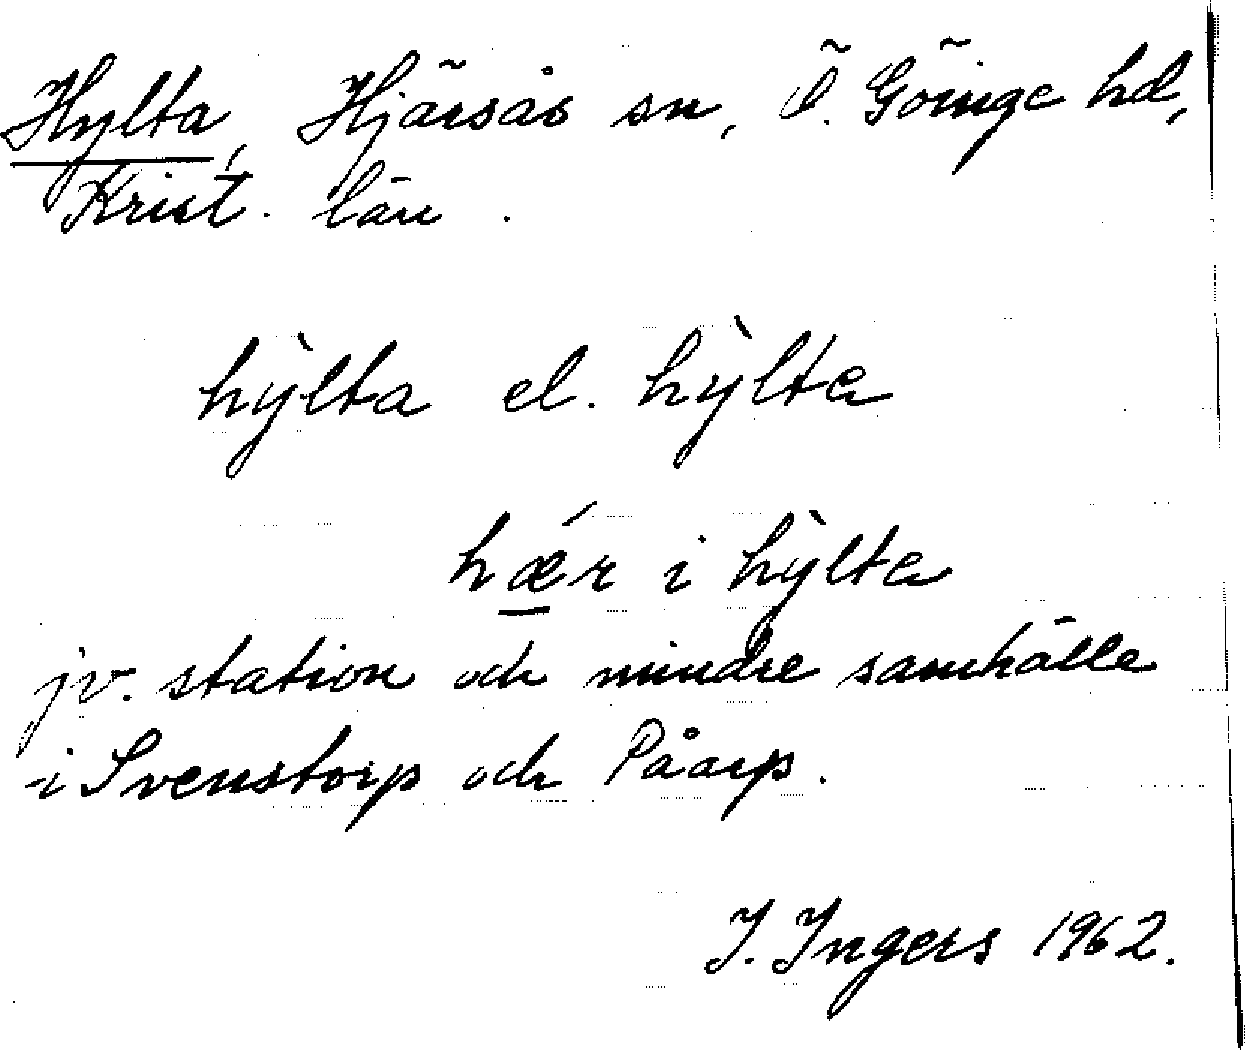 Hylta, Hjärsås sn, Ö. Göinge hd,
Krist. län.
hỳlta el. hỳlta
hǽr i hỳlta
jv. station och mindre samhälle
i Svenstorp och Påarp.
I. Ingers 1962.